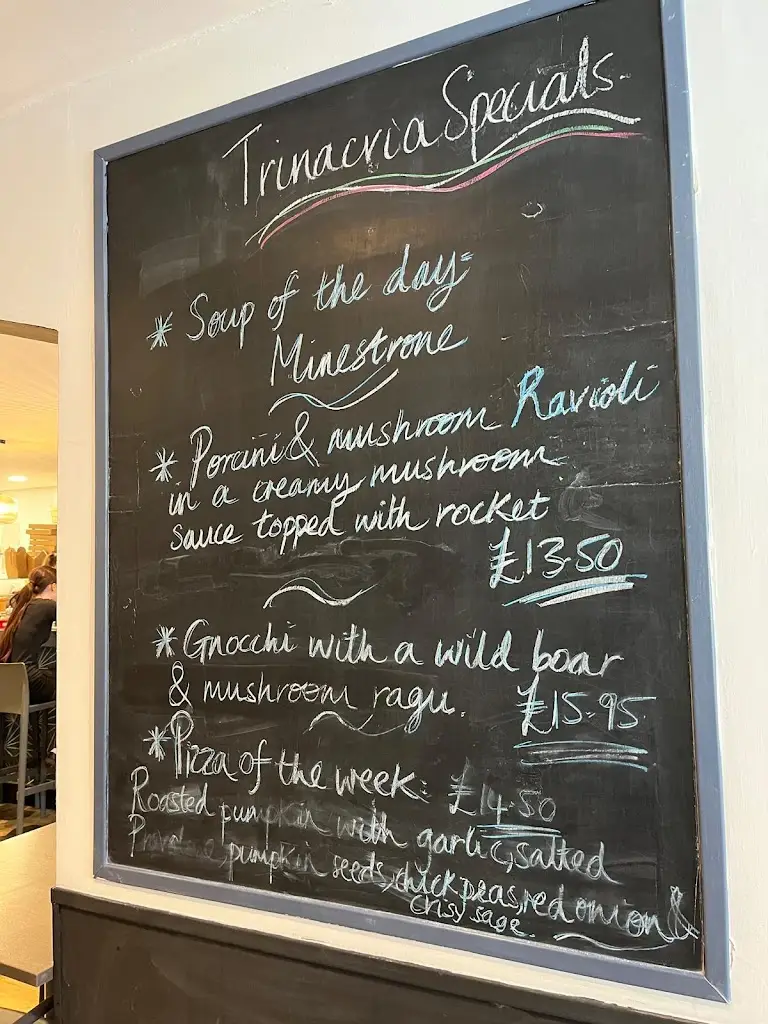 Trinacria Specials.
* Soup of the day=
Minestrone
* Porcini & mushroom Ravioli
in a creamy mushroom
sauce topped with rocket
£13.50
* Gnocchi with a wild boar
& mushroom ragu. £15.95
* Pizza of the week: £14.50
Roasted pumpkin with garlic, salted
pumpkin seeds, chickpeas, red onion &
crisy sage.